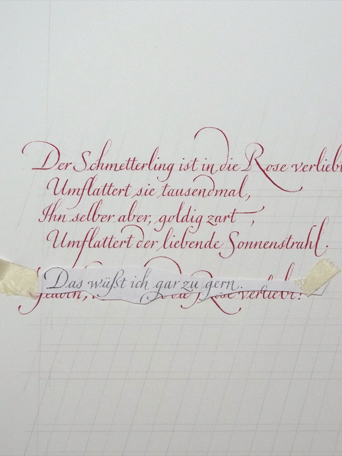 Der Schmetterling ist in die Rose verliebt
Umflattert sie tausendmal,
Ihn selber aber, goldig zart,
Umflattert der liebende Sonnenstrahl.
Das wüßt ich gar zu gern.
Rose verliebt?